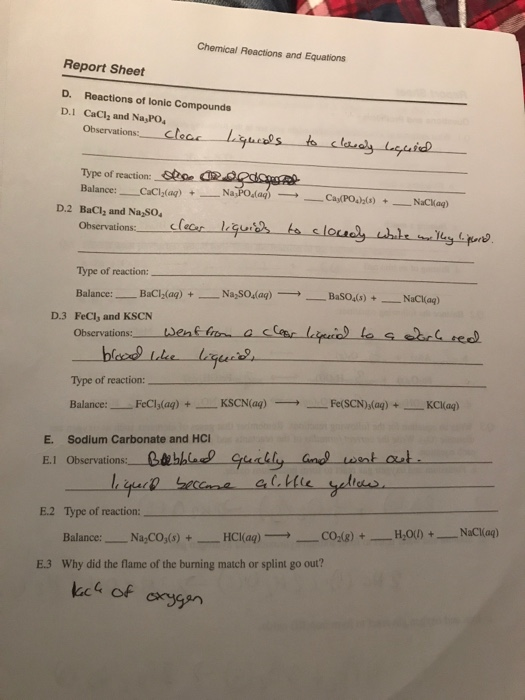 Chemical Reactions and Equations
Report Sheet
D. Reactions of Ionic Compounds
D.1 CaCl₂ and Na₃PO₄
Observations: clear liquids to cloudy liquid
Type of reaction:
Balance: ___ CaCl₂(aq) + ___ Na₃PO₄(aq) ⟶ ___ Ca₃(PO₄)₂(s) + ___ NaCl(aq)
D.2 BaCl₂ and Na₂SO₄
Observations: clear liquids to cloudy white milky liquid.
Type of reaction:
Balance: ___ BaCl₂(aq) + ___ Na₂SO₄(aq) ⟶ ___ BaSO₄(s) + ___ NaCl(aq)
D.3 FeCl₃ and KSCN
Observations: Went from a clear liquid to a dark red
blood like liquid,
Type of reaction:
Balance: ___ FeCl₃(aq) + ___ KSCN(aq) ⟶ ___ Fe(SCN)₃(aq) + ___ KCl(aq)
E. Sodium Carbonate and HCl
E.1 Observations: Bubbled quickly and went out.
liquid became a little yellow.
E.2 Type of reaction:
Balance: ___ Na₂CO₃(s) + ___ HCl(aq) ⟶ ___ CO₂(g) + ___ H₂O(l) + ___ NaCl(aq)
E.3 Why did the flame of the burning match or splint go out?
lack of oxygen